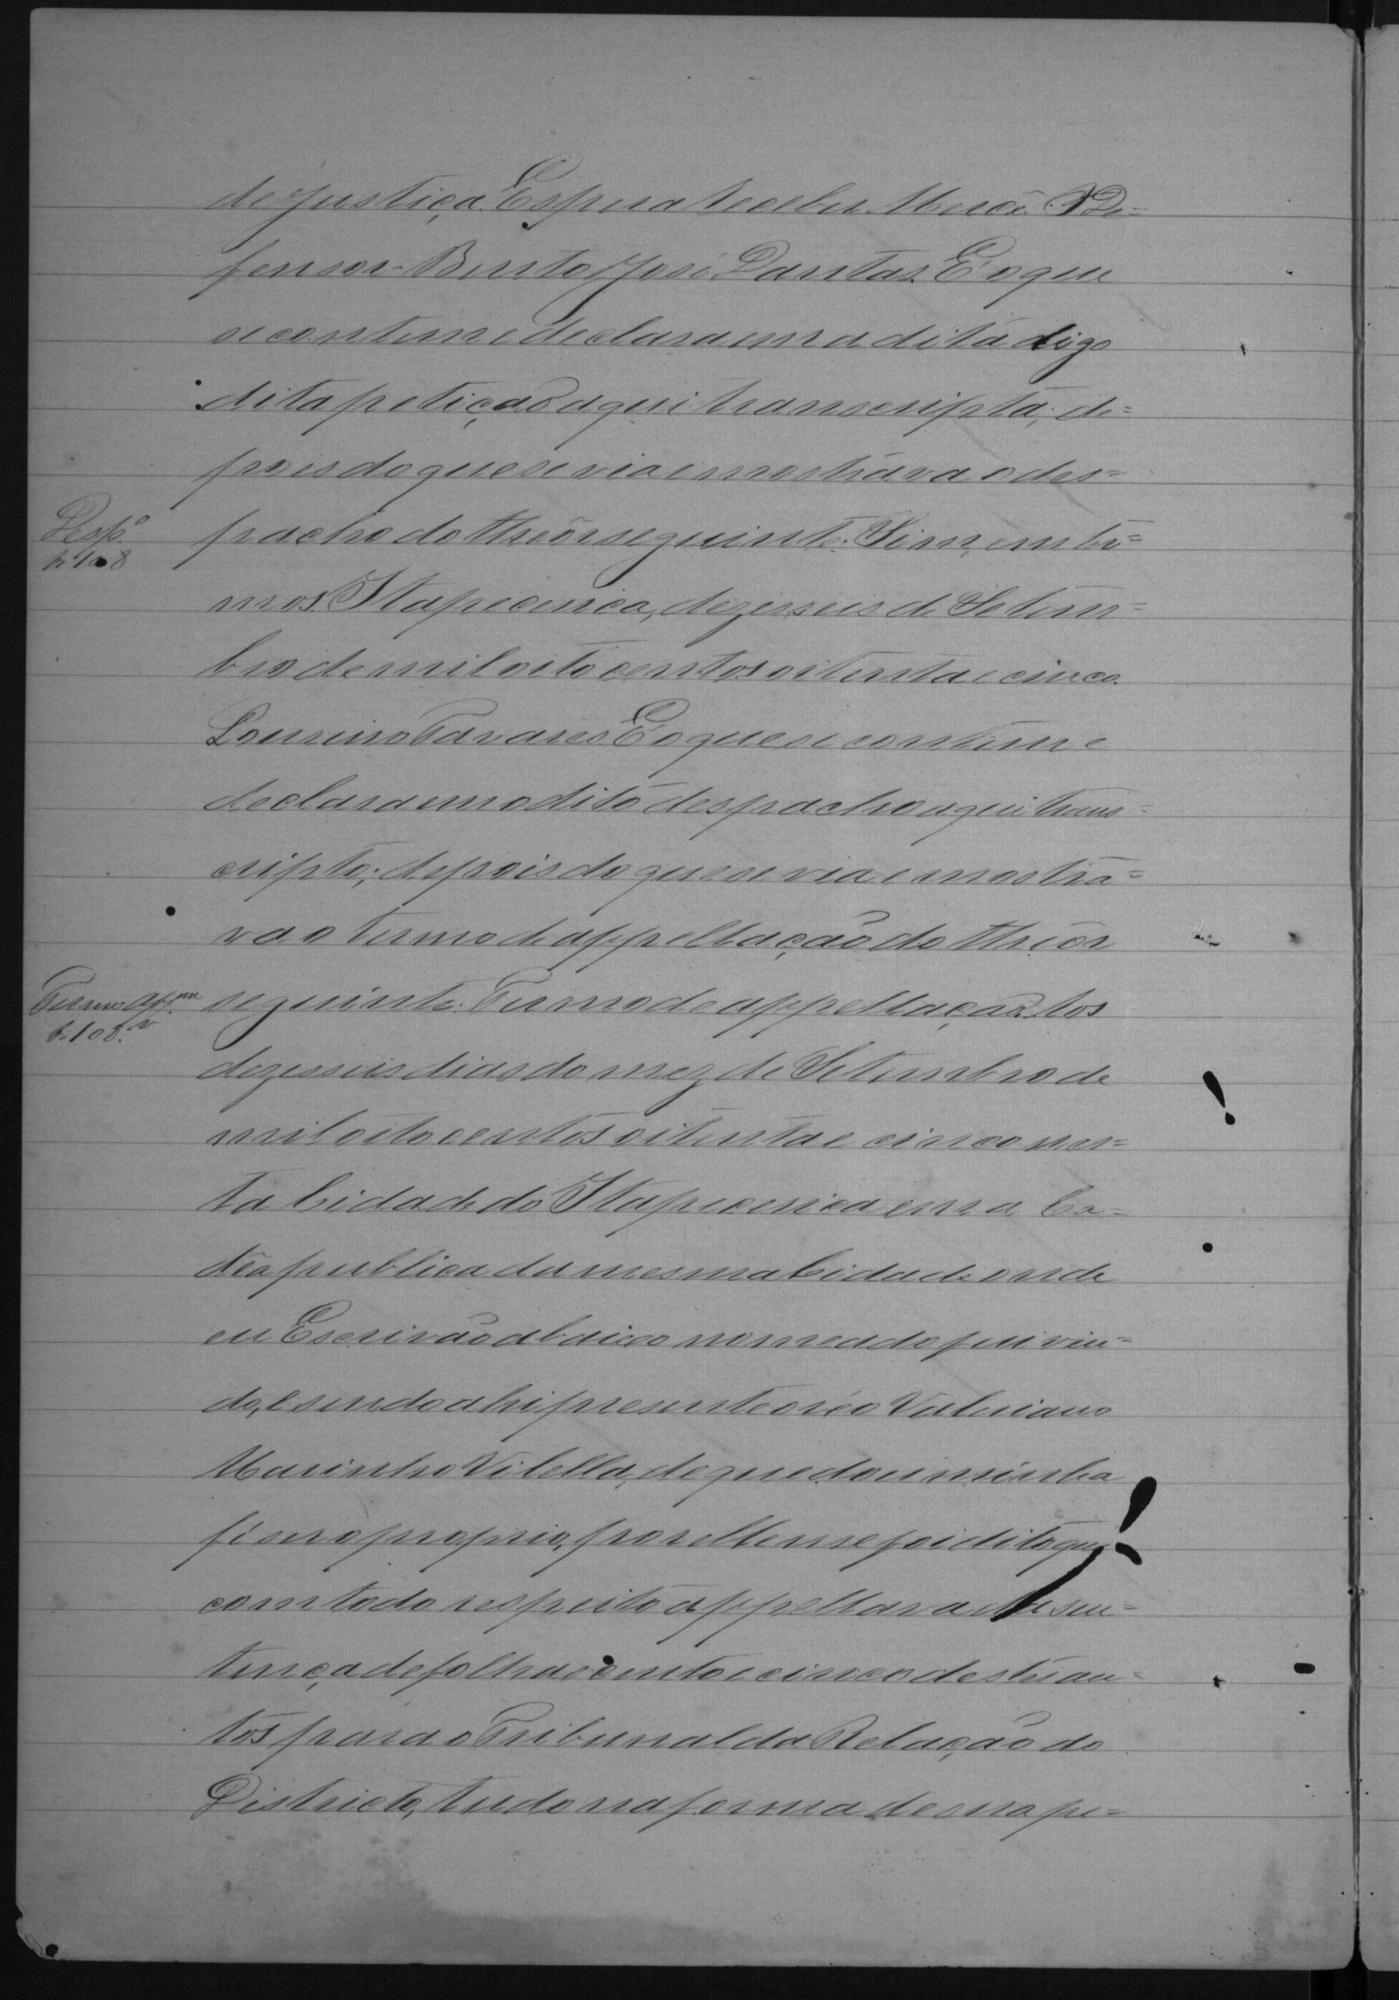 de justiça. Espera receber Mercê. O De=
fensor Bento José Dantas. E o que
se contem e declara em a dita digo
dita petição aqui transcripta; de=
pois do que se via e mostrava o des=
Desp.º
f. 108
pacho do theôr seguinte: Sim, em ter=
mos. Itapecerica, dezesseis de Setem=
bro de mil oitocentos oitenta e cinco.
Loureiro Tavares. E o que se contem e
declara em o dito despacho aqui trans=
cripto; depois do que se via e mostra=
va o termo de appellação do theôr
Termo app.am
f. 108.v
seguinte: Termo de appellação. Aos
dezesseis dias do mez de Setembro de
mil oitocentos oitenta e cinco nes=
ta Cidade do Itapecerica em a Ca=
dêa publica da mesma Cidade onde
eu Escrivão abaixo nomeado fui vin=
do, e sendo ahi presente o réo Valeriano
Marinho Vilella, de que dou minha
fé ser o proprio, por elle me foi dito que
com todo respeito appellava da sen=
tença de folhas cento e cinco destes au=
tos para o Tribunal da Relação do
Districto, tudo na forma de sua pe=